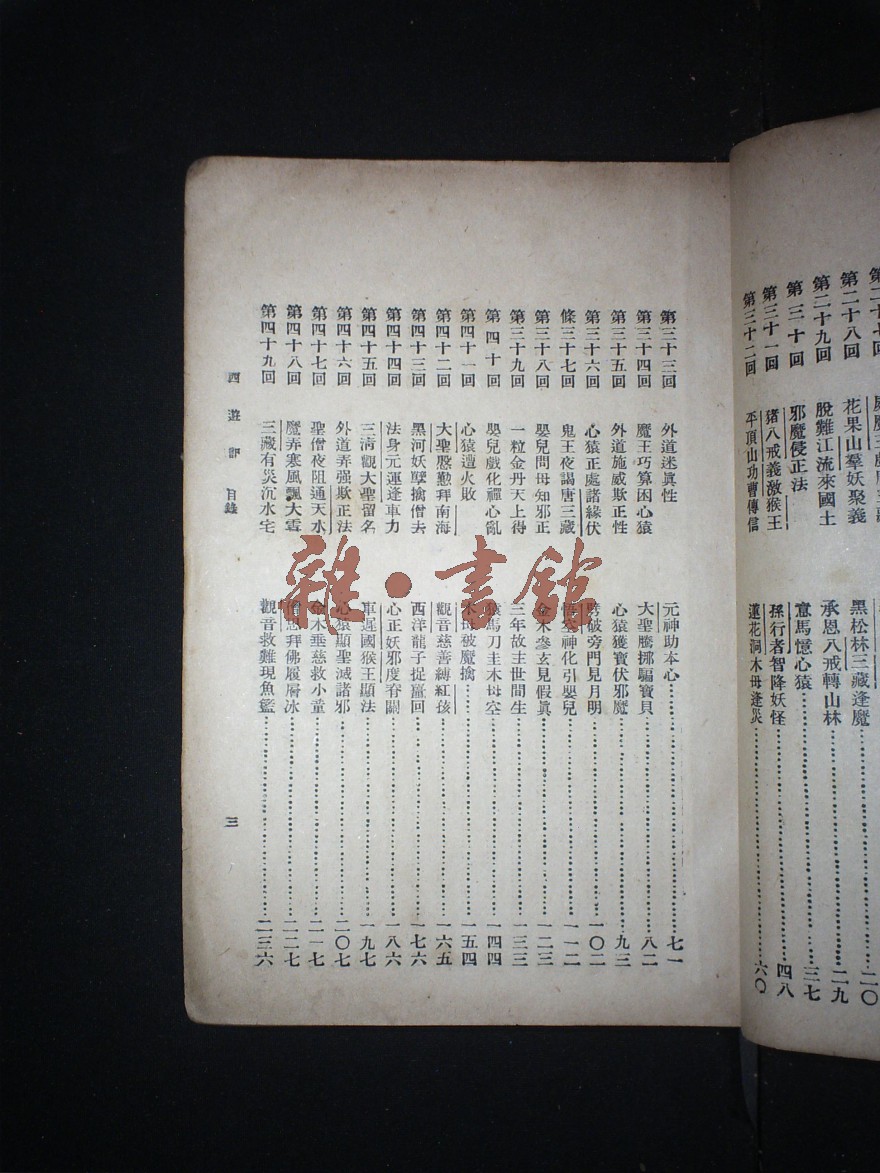 第二十八回　花果山羣妖聚義　黑松林三藏逢魔……二〇
第二十九回　脫難江流來國土　承恩八戒轉山林……二九
第三十回　邪魔侵正法　意馬憶心猿……三七
第三十一回　豬八戒義激猴王　孫行者智降妖怪……四八
第三十二回　平頂山功曹傳信　蓮花洞木母逢災……六〇
第三十三回　外道迷眞性　元神助本心……七一
第三十四回　魔王巧算困心猿　大聖騰挪騙寶貝……八二
第三十五回　外道施威欺正性　心猿獲寶伏邪魔……九三
第三十六回　心猿正處諸緣伏　劈破旁門見月明……一〇二
條三十七回　鬼王夜謁唐三藏　悟空神化引嬰兒……一一二
第三十八回　嬰兒問母知邪正　金木參玄見假眞……一二三
第三十九回　一粒金丹天上得　三年故主世間生……一三三
第四十回　嬰兒戲化禪心亂　猿馬刀圭木母空……一四四
第四十一回　心猿遭火敗　木母破魔擒……一五四
第四十二回　大聖慇懃拜南海　觀音慈善縛紅孩……一六五
第四十三回　黑河妖孽擒僧去　西洋龍子捉鼉回……一七六
第四十四回　法身元運逢車力　心正妖邪度脊關……一八六
第四十五回　三淸觀大聖留名　車遲國猴王顯法……一九七
第四十六回　外道弄强欺正法　心猿顯聖滅諸邪……二〇七
第四十七回　聖僧夜阻通天水　金木垂慈救小童……二一七
第四十八回　魔弄寒風飄大雪　僧思拜佛履層冰……二二七
第四十九回　三藏有災沉水宅　觀音救難現魚籃……二三六
西遊記　目錄　三
雜·書館